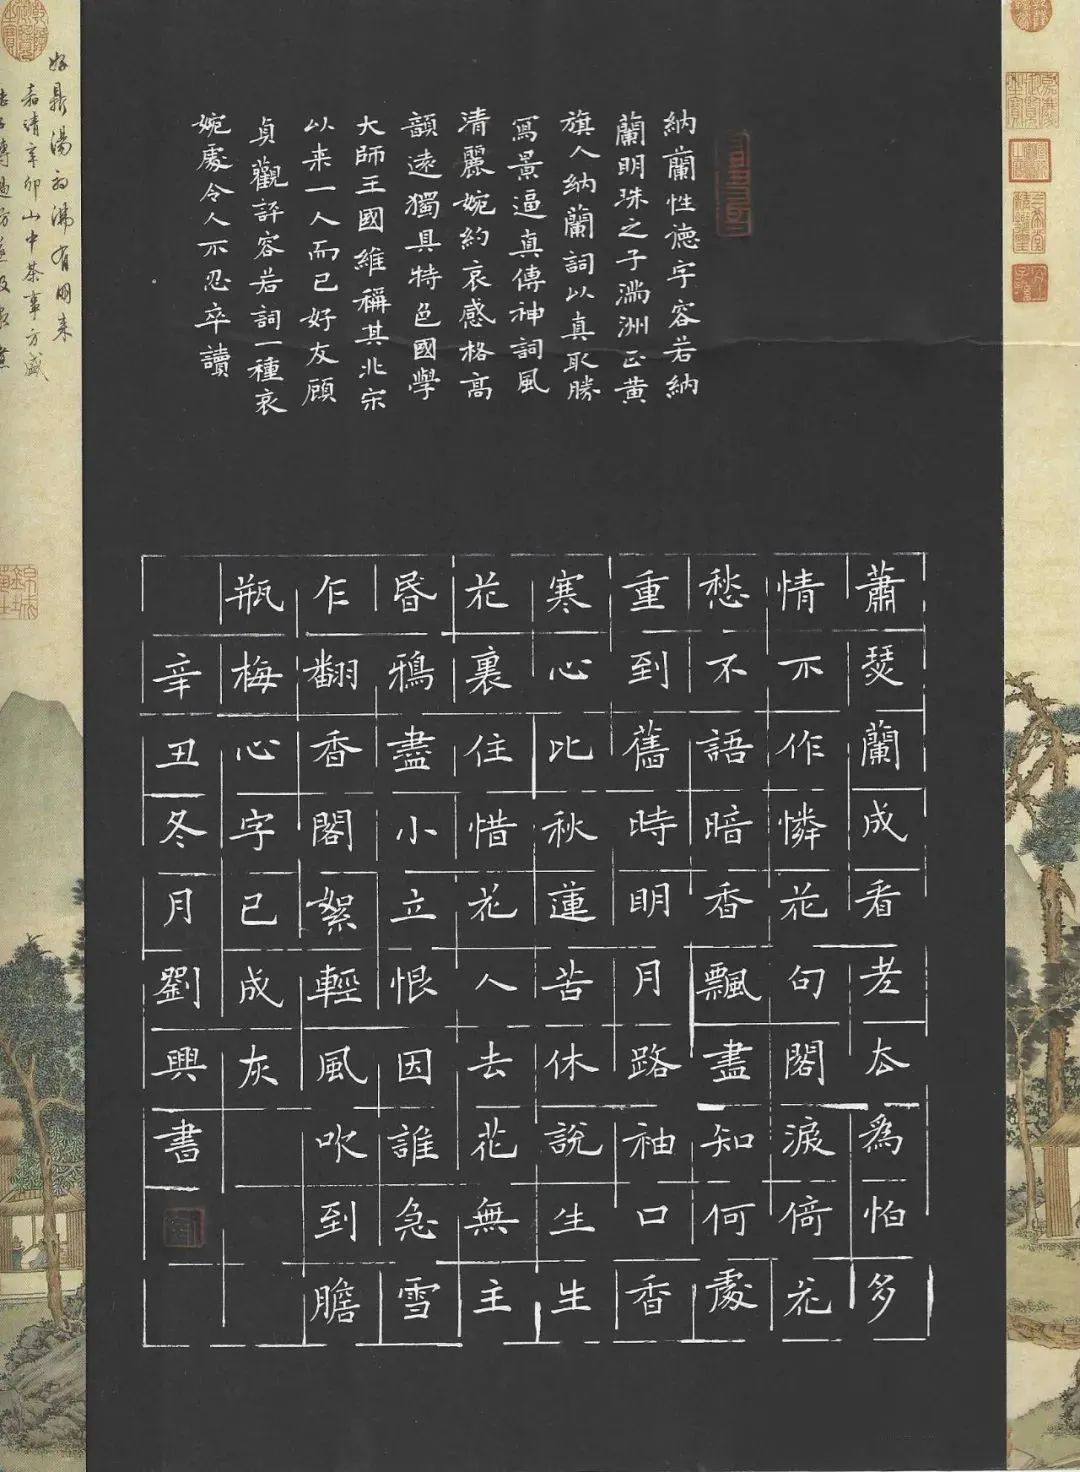 納蘭性德字容若納
蘭明珠之子滿洲正黃
旗人納蘭詞以真取勝
寫景逼真傳神詞風
清麗婉約哀感格高
韻遠獨具特色國學
大師王國維稱其北宋
以来一人而已好友顧
貞觀評容若詞一種哀
婉處令人不忍卒讀
蕭瑟蘭成看老去為怕多
情不作憐花句閣淚倚花
愁不語暗香飄盡知何處
重到舊時明月路袖口香
寒心比秋蓮苦休說生生
花裏住惜花人去花無主
昏鴉盡小立恨因誰急雪
乍翻香閣絮輕風吹到膽
瓶梅心字已成灰
辛丑冬月劉興書
好鼎湯初沸有朋来
嘉靖辛卯山中茶事方盛